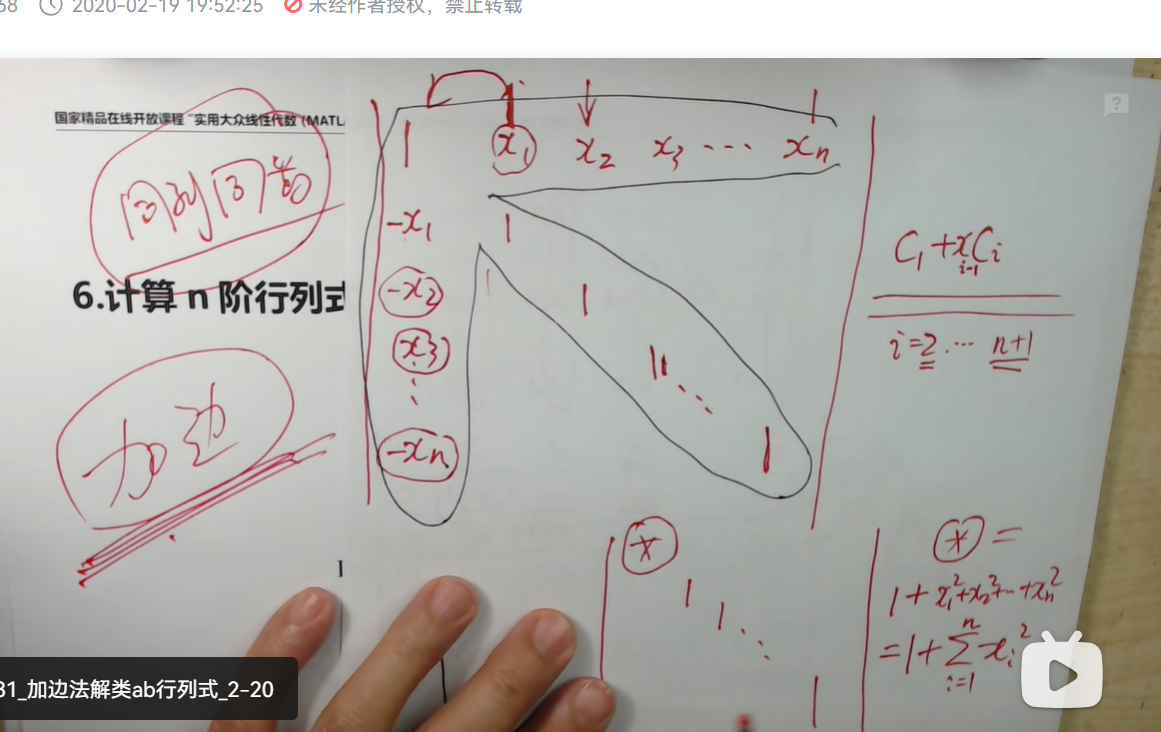 68 2020-02-19 19:52:25 未经作者授权，禁止转载
国家精品在线开放课程 "实用大众线性代数 (MATL
同列同势
6.计算 n 阶行列式
加边
1 x₁ x₂ x₃ ··· xₙ
-x₁ 1
-x₂ 1
x₃ 1
⋮ ⋱
-xₙ 1
C₁+xᵢ₋₁Cᵢ
i=2 ··· n+1
*
1
1
⋱
1
* =
1+x₁²+x₂²+··+xₙ²
=1+∑ⁿᵢ₌₁ xᵢ²
31_加边法解类ab行列式_2-20
?